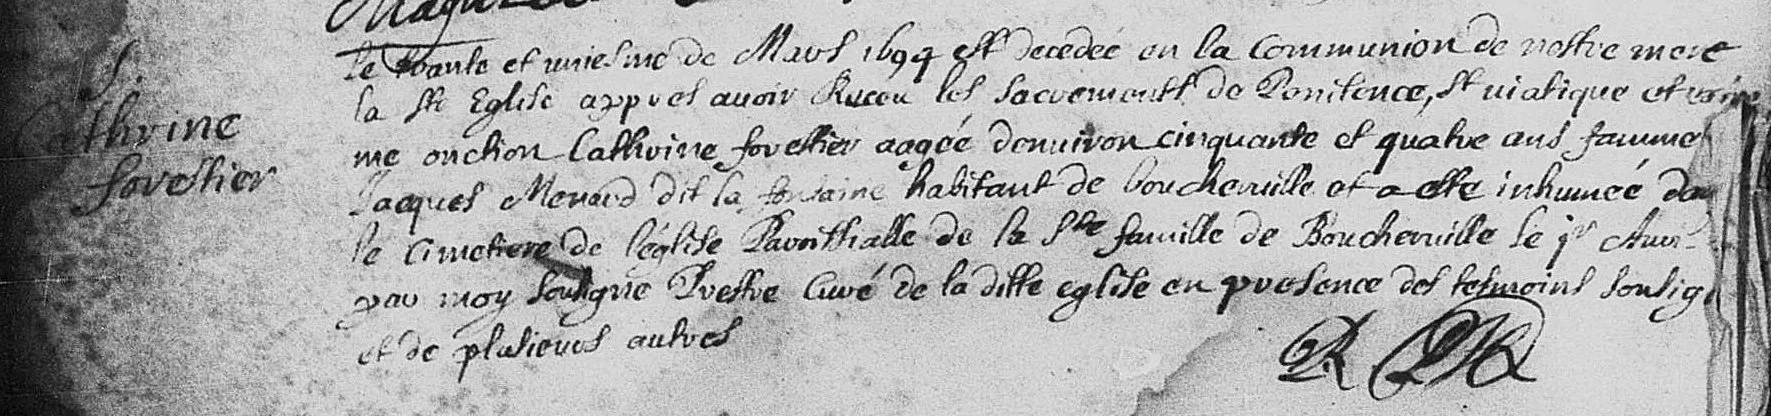 S.
Cathrine
forestier
le trante et uniesme de Mars 1694 est decedeé en la Communion de nostre mere
la Ste Eglise appres avoir Receu les sacrements de Penitence, St viatique et
me onction Cathrine forestier aagée denuiron cinquante et quatre ans famme
Jacques Menard dit la fontaine habitant de boucheruille et a esté inhumeé da
le Cimetiere de l'église Paroissialle de la Ste famille de Boucheruille le jr Avri
par moy soubsigné Prestre Curé de la ditte eglise en presence des tesmoins soubsig
et de plusieurs autres